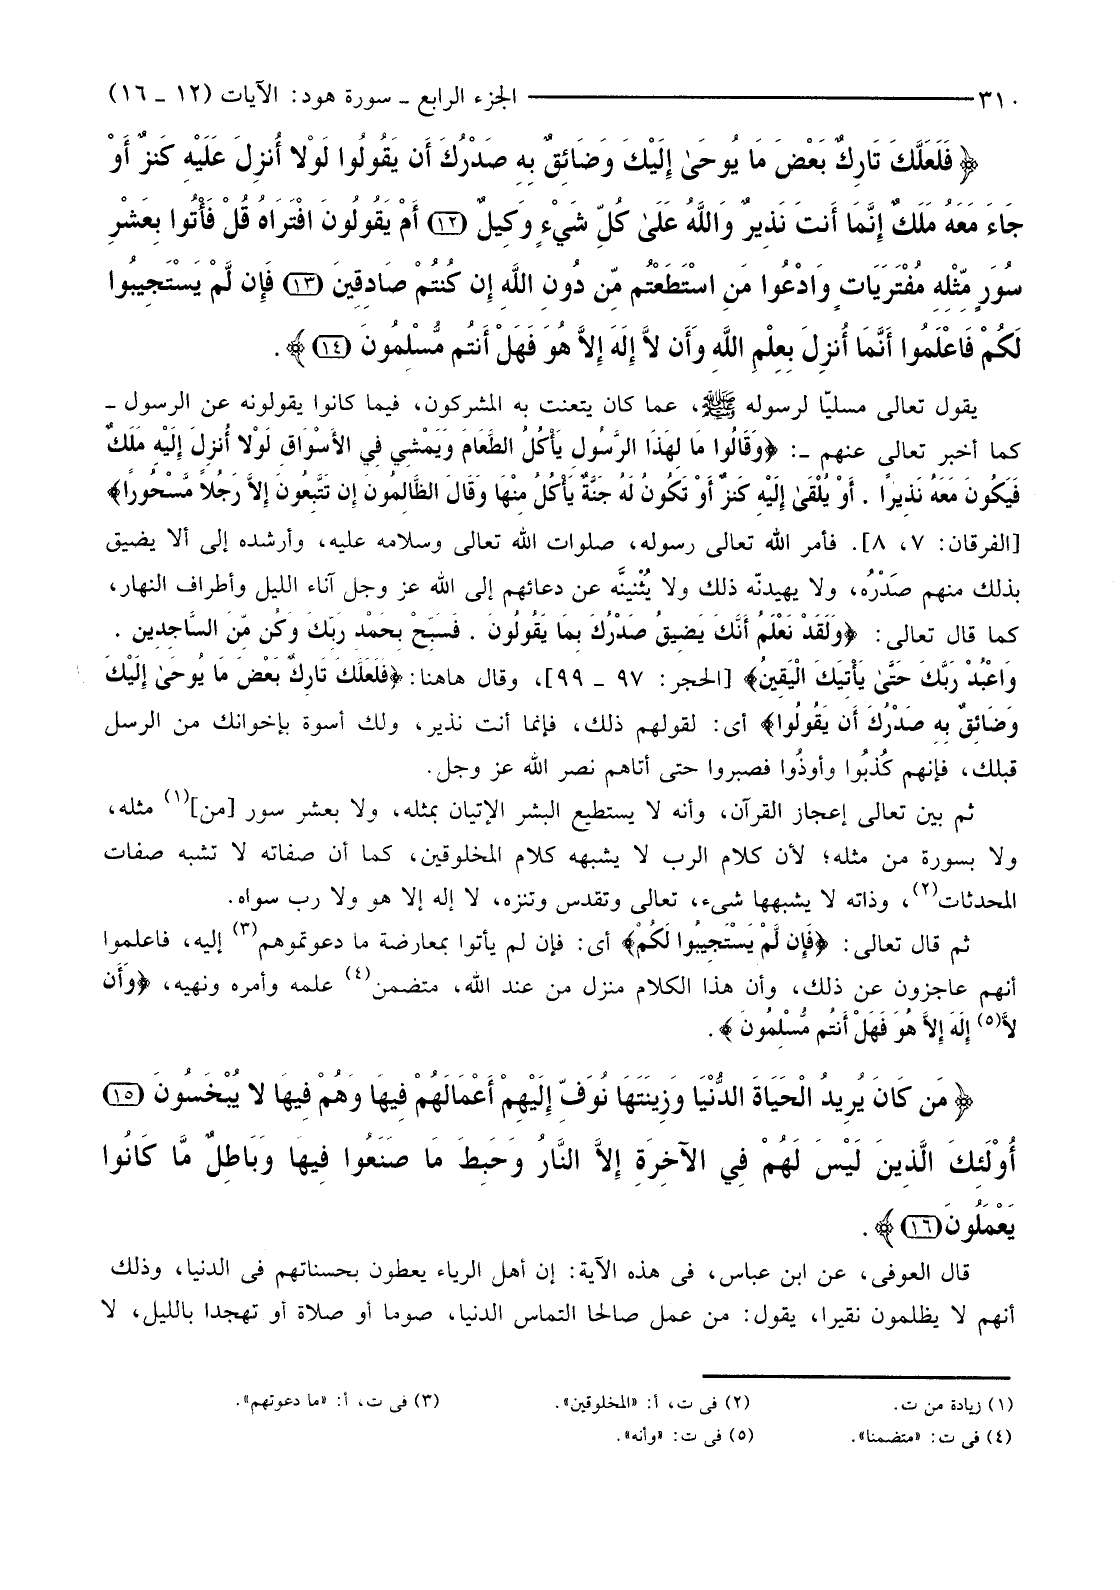 ٣١٠ ــــــ الجزء الرابع ـ سورة هود: الآيات (١٢ ـ ١٦)
﴿ فَلَعَلَّكَ تَارِكٌ بَعْضَ مَا يُوحَىٰ إِلَيْكَ وَضَائِقٌ بِهِ صَدْرُكَ أَن يَقُولُوا لَوْلا أُنزِلَ عَلَيْهِ كَنزٌ أَوْ
جَاءَ مَعَهُ مَلَكٌ إِنَّمَا أَنتَ نَذِيرٌ وَاللَّهُ عَلَىٰ كُلِّ شَيْءٍ وَكِيلٌ (١٢) أَمْ يَقُولُونَ افْتَرَاهُ قُلْ فَأْتُوا بِعَشْرِ
سُوَرٍ مِّثْلِهِ مُفْتَرَيَاتٍ وَادْعُوا مَنِ اسْتَطَعْتُم مِّن دُونِ اللَّهِ إِن كُنتُمْ صَادِقِينَ (١٣) فَإِن لَّمْ يَسْتَجِيبُوا
لَكُمْ فَاعْلَمُوا أَنَّمَا أُنزِلَ بِعِلْمِ اللَّهِ وَأَن لاَّ إِلَهَ إِلاَّ هُوَ فَهَلْ أَنتُم مُّسْلِمُونَ (١٤) ﴾ .
يقول تعالى مسليّا لرسوله ﷺ، عما كان يتعنت به المشركون، فيما كانوا يقولونه عن الرسول ـ
كما أخبر تعالى عنهم ـ: ﴿وَقَالُوا مَا لِهَذَا الرَّسُولِ يَأْكُلُ الطَّعَامَ وَيَمْشِي فِي الأَسْوَاقِ لَوْلا أُنزِلَ إِلَيْهِ مَلَكٌ
فَيَكُونَ مَعَهُ نَذِيرًا . أَوْ يُلْقَىٰ إِلَيْهِ كَنزٌ أَوْ تَكُونُ لَهُ جَنَّةٌ يَأْكُلُ مِنْهَا وَقَالَ الظَّالِمُونَ إِن تَتَّبِعُونَ إِلاَّ رَجُلاً مَّسْحُورًا﴾
[الفرقان: ٧، ٨]. فأمر الله تعالى رسوله، صلوات الله تعالى وسلامه عليه، وأرشده إلى ألا يضيق
بذلك منهم صَدْرُه، ولا يهيدنّه ذلك ولا يُثْنينَّه عن دعائهم إلى الله عز وجل آناء الليل وأطراف النهار،
كما قال تعالى: ﴿وَلَقَدْ نَعْلَمُ أَنَّكَ يَضِيقُ صَدْرُكَ بِمَا يَقُولُونَ . فَسَبِّحْ بِحَمْدِ رَبِّكَ وَكُن مِّنَ السَّاجِدِينَ .
وَاعْبُدْ رَبَّكَ حَتَّىٰ يَأْتِيَكَ الْيَقِينُ﴾ [الحجر: ٩٧ ـ ٩٩]، وقال هاهنا: ﴿فَلَعَلَّكَ تَارِكٌ بَعْضَ مَا يُوحَىٰ إِلَيْكَ
وَضَائِقٌ بِهِ صَدْرُكَ أَن يَقُولُوا﴾ أى: لقولهم ذلك، فإنما أنت نذير، ولك أسوة بإخوانك من الرسل
قبلك، فإنهم كُذبُوا وأوذُوا فصبروا حتى أتاهم نصر الله عز وجل.
ثم بين تعالى إعجاز القرآن، وأنه لا يستطيع البشر الإتيان بمثله، ولا بعشر سور [من](١) مثله،
ولا بسورة من مثله؛ لأن كلام الرب لا يشبهه كلام المخلوقين، كما أن صفاته لا تشبه صفات
المحدثات(٢)، وذاته لا يشبهها شىء، تعالى وتقدس وتنزه، لا إله إلا هو ولا رب سواه.
ثم قال تعالى: ﴿فَإِن لَّمْ يَسْتَجِيبُوا لَكُمْ﴾ أى: فإن لم يأتوا بمعارضة ما دعوتموهم(٣) إليه، فاعلموا
أنهم عاجزون عن ذلك، وأن هذا الكلام منزل من عند الله، متضمن(٤) علمه وأمره ونهيه، ﴿وَأَن
لاَّ(٥) إِلَهَ إِلاَّ هُوَ فَهَلْ أَنتُم مُّسْلِمُونَ ﴾ .
﴿ مَن كَانَ يُرِيدُ الْحَيَاةَ الدُّنْيَا وَزِينَتَهَا نُوَفِّ إِلَيْهِمْ أَعْمَالَهُمْ فِيهَا وَهُمْ فِيهَا لا يُبْخَسُونَ (١٥)
أُوْلَئِكَ الَّذِينَ لَيْسَ لَهُمْ فِي الآخِرَةِ إِلاَّ النَّارُ وَحَبِطَ مَا صَنَعُوا فِيهَا وَبَاطِلٌ مَّا كَانُوا
يَعْمَلُونَ (١٦) ﴾ .
قال العوفى، عن ابن عباس، فى هذه الآية: إن أهل الرياء يعطون بحسناتهم فى الدنيا، وذلك
أنهم لا يظلمون نقيرا، يقول: من عمل صالحا التماس الدنيا، صوما أو صلاة أو تهجدا بالليل، لا
(١) زيادة من ت. (٢) فى ت، أ: «المخلوقين». (٣) فى ت، أ: «ما دعوتهم».
(٤) فى ت: «متضمنا». (٥) فى ت: «وأنه».